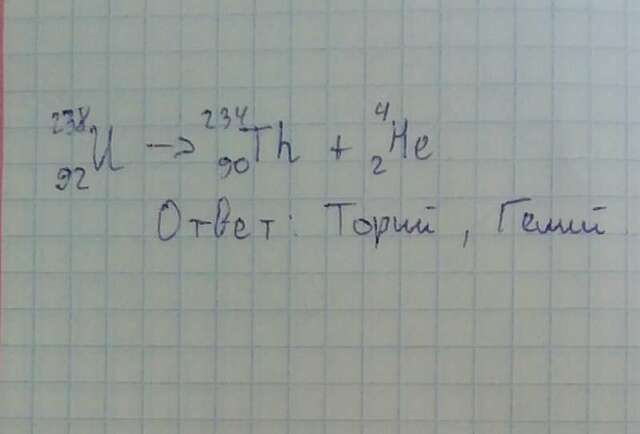 ²³⁸₉₂U → ²³⁴₉₀Th + ⁴₂He
Ответ: Торий, Гелий